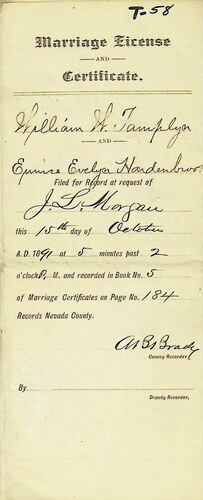 T-58
Marriage License
AND
Certificate.
William W. Tamplyn
AND
Eunice Evelyn Hardenbroo
Filed for Record at request of
J. L. Morgan
this 15th day of October
A.D. 1891 at 5 minutes past 2
o'clock P. M. and recorded in Book No. 5
of Marriage Certificates on Page No. 184
Records Nevada County.
Brady
County Recorder
By
Deputy Recorder,